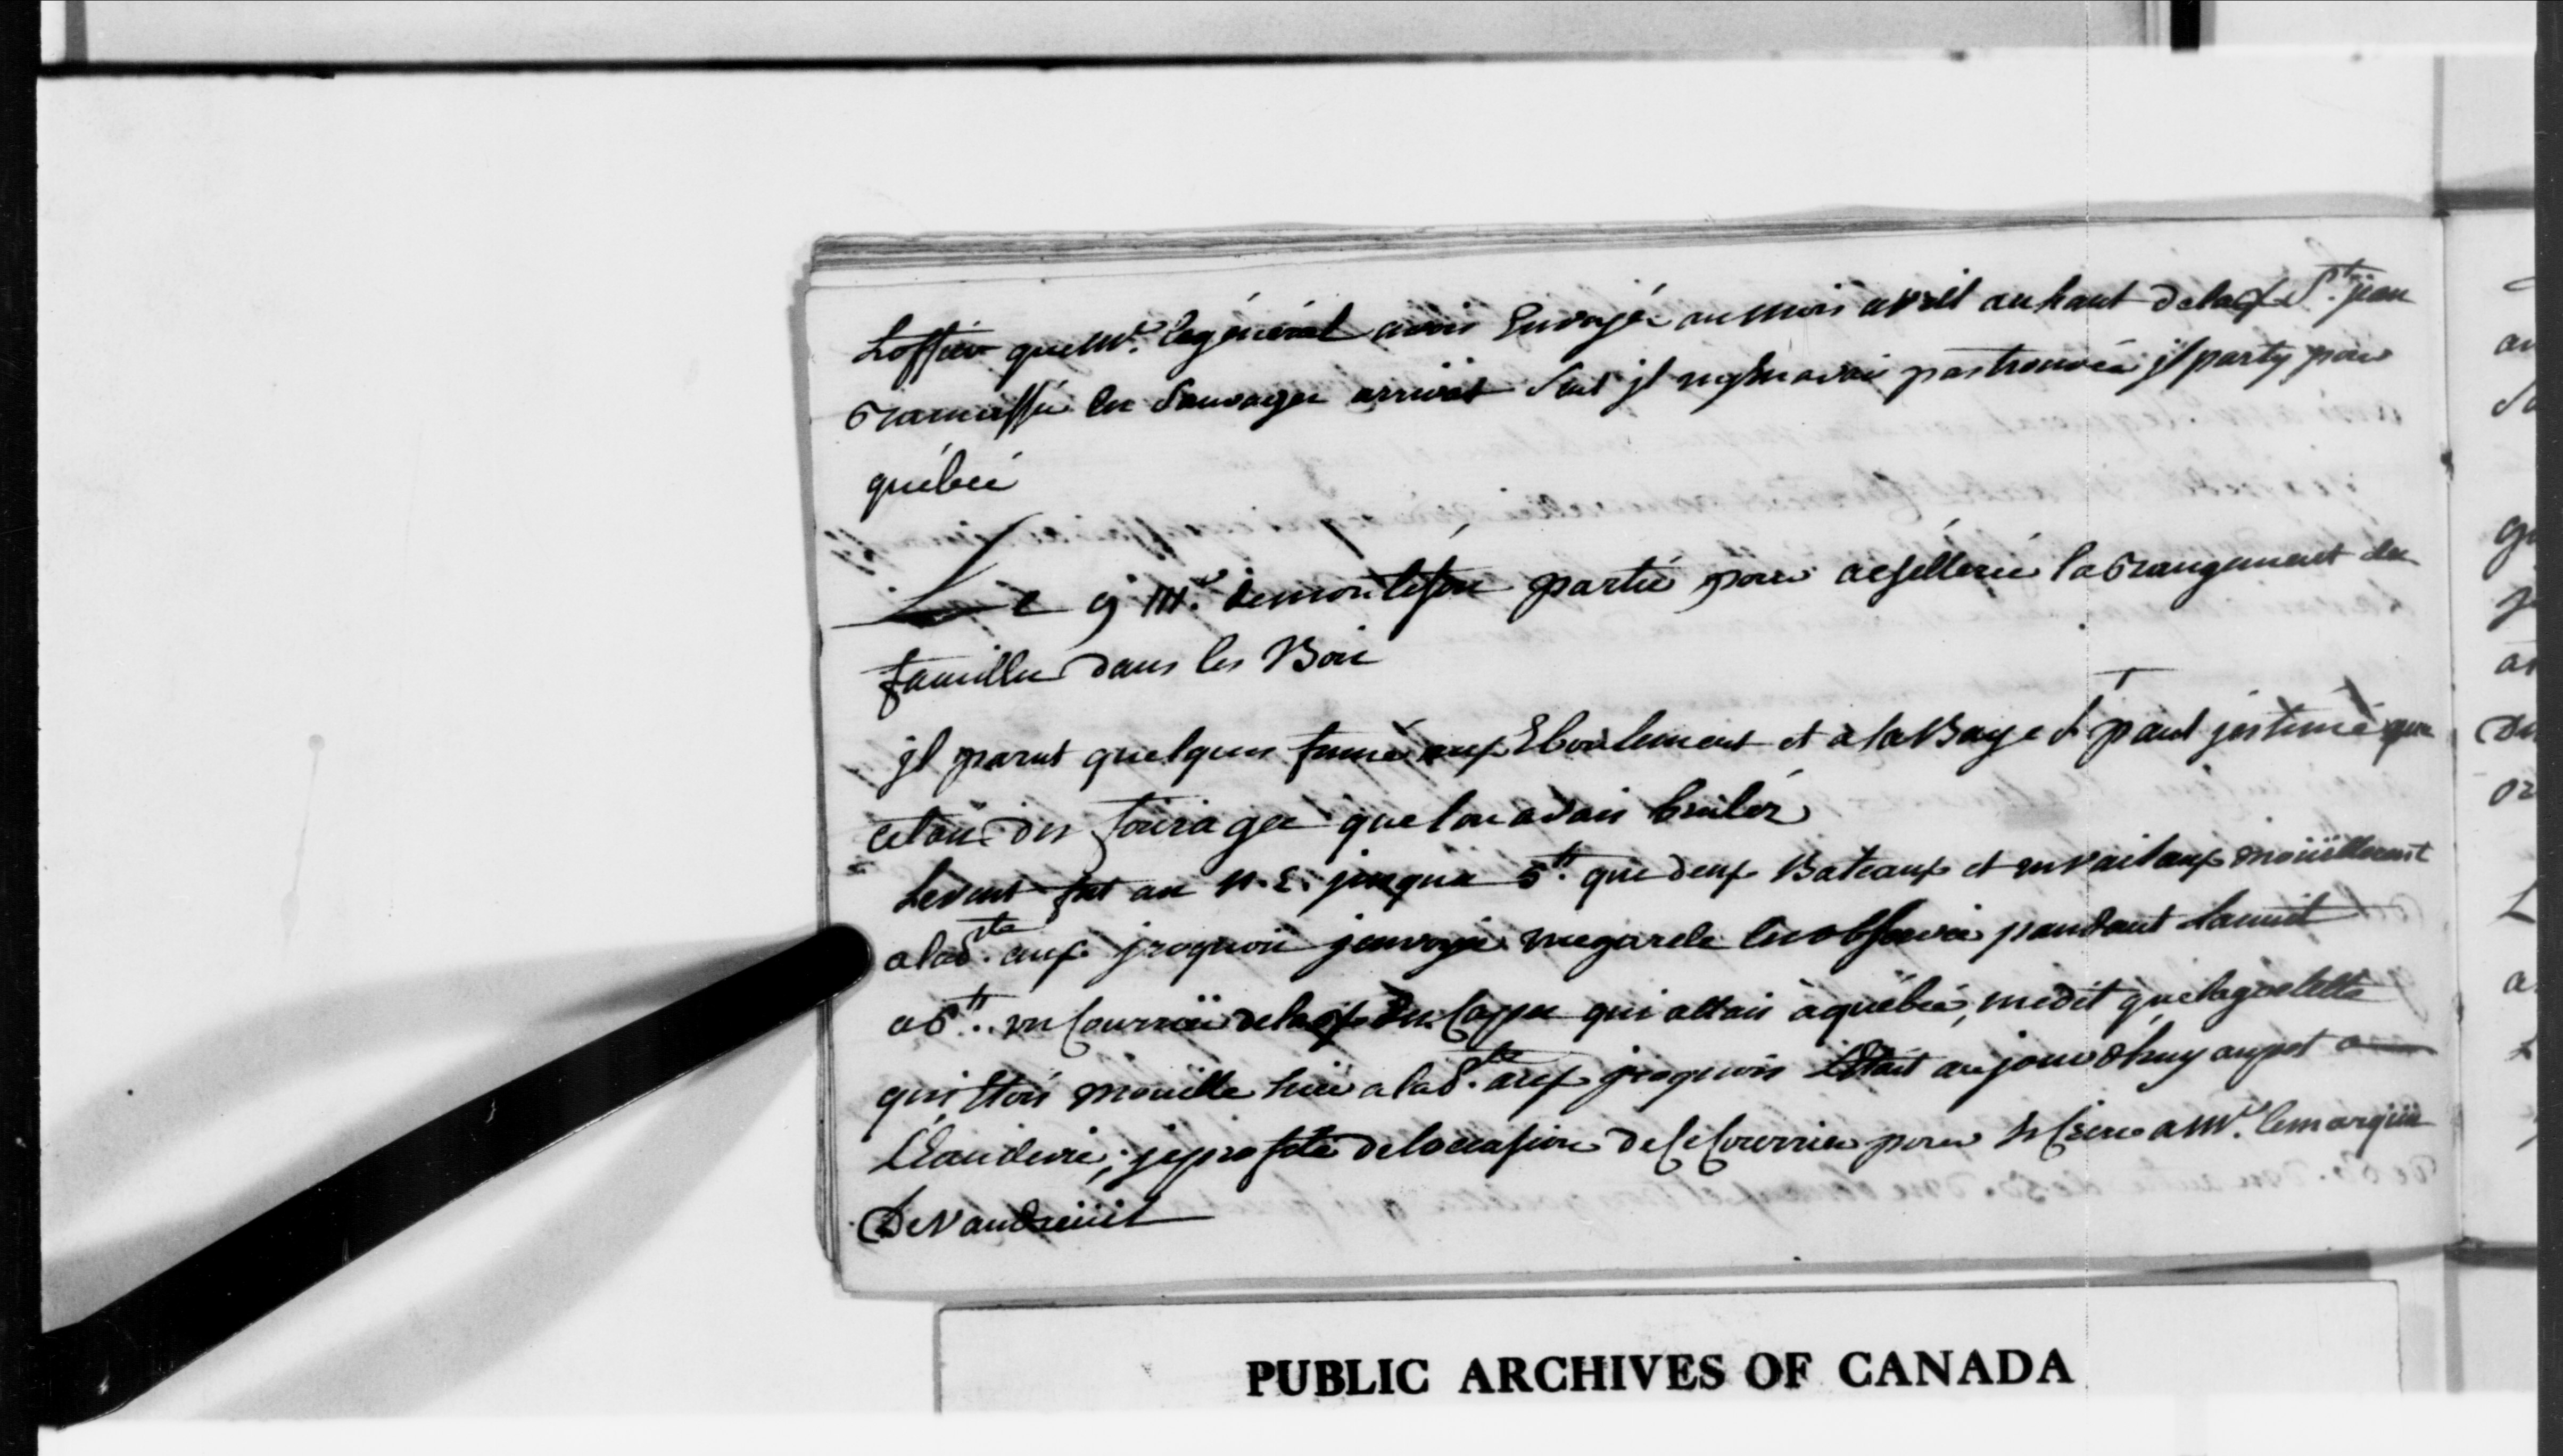 Loffisié que Mr. le général avois Envoyér au mois avril au haut de la R St. jean
ramassér les Sauvages arrivat dont jl ny en avois pas trouvéé jl party pour
québéé
Le 9 Mr. de montesson partie pour acsellerer larangement des
familles dans les Bois
jl parut quelques fumé aux Eboulement et à la Baye St paul jestimé que
cetois des fourages que lon avais brulér
Le vent fut au N. E. jusqua 5h. que deux Bateaux et un vaisaux moüillerent
alad. aux jroquois jenvoyé une garde les observér pandant la nuit
a 6h. un Courriér de la des Cappes qui allais à québéé, me dit que la goelette
qui Etois mouille hier alad. aux jroquois Etait aujourdhuy au pot a
Leaudevie; je profité de locasion de Ce Courrier pour Escrire a Mr. le marquis
De Vaudreüil
PUBLIC ARCHIVES OF CANADA